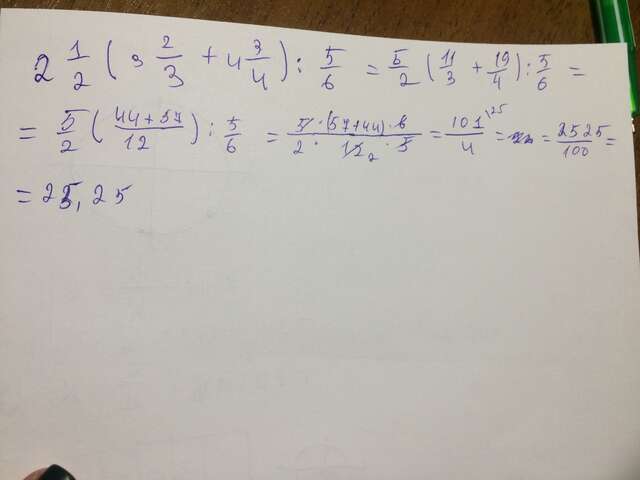 2 1/2 ( 3 2/3 + 4 3/4 ) : 5/6 = 5/2 ( 11/3 + 19/4 ) : 5/6 =
= 5/2 ( 44+57/12 ) : 5/6 = 5·(57+44)·6/2·12 2·5 = 101/4 \25 = = 2525/100 =
= 25,25